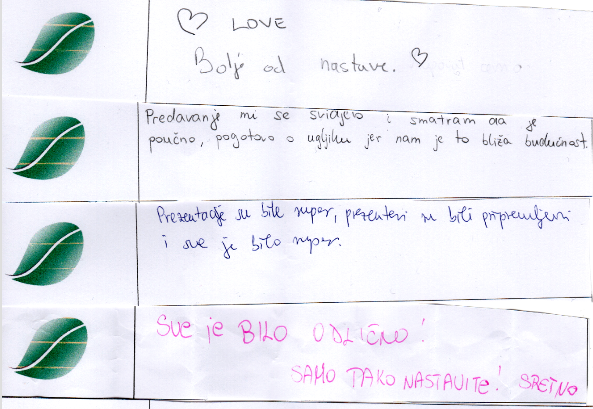 ♡ LOVE
Bolje od nastave. ♡
Predavanje mi se svidjelo i smatram da je
poučno, pogotovo o ugljiku jer nam je to bliža budućnost.
Prezentacije su bile super, prezenteri su bili pripremljeni
i sve je bilo super.
Sve je BILO ODLIČNO!
SAMO TAKO NASTAVITE! SRETNO